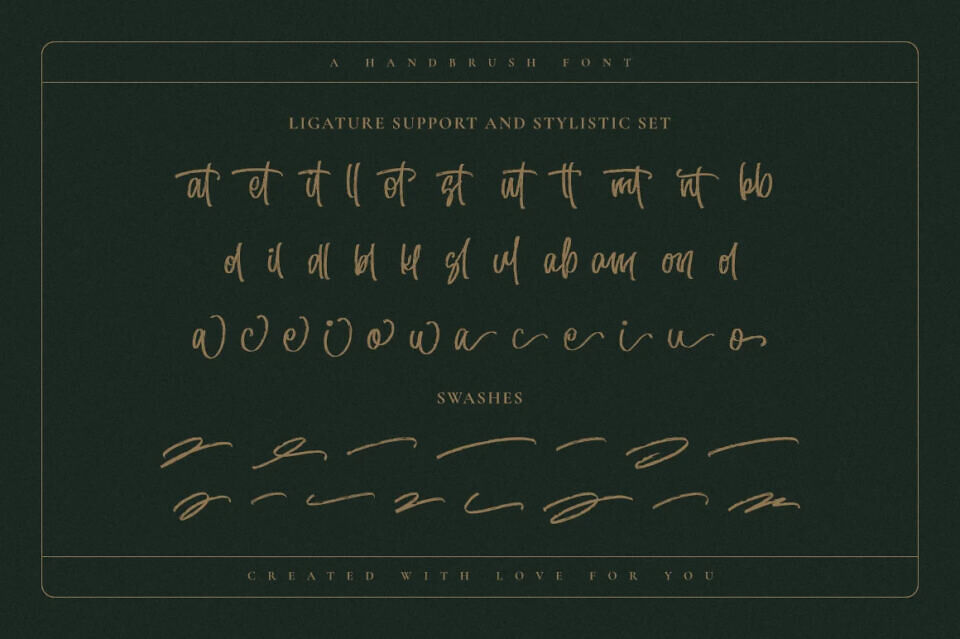 A HANDBRUSH FONT
LIGATURE SUPPORT AND STYLISTIC SET
at et it ll ot st ut tt mt nt bb
il dll bl kl sl ul ab am on
a c e i o w a c e i u o
SWASHES
CREATED WITH LOVE FOR YOU